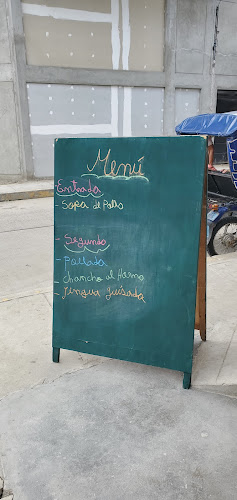 Menú
Entrada
- Sopa de Pollo
- Segundo
- Pollada
- Chancho al Horno
- Lengua Guisada